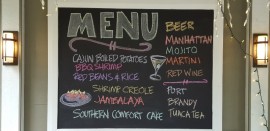 MENU
CAJUN BOILED POTATOES
BBQ SHRIMP
RED BEANS & RICE
SHRIMP CREOLE
JAMBALAYA
SOUTHERN COMFORT CAKE
BEER
MANHATTAN
MOJITO
MARTINI
RED WINE
PORT
BRANDY
TUACA TEA